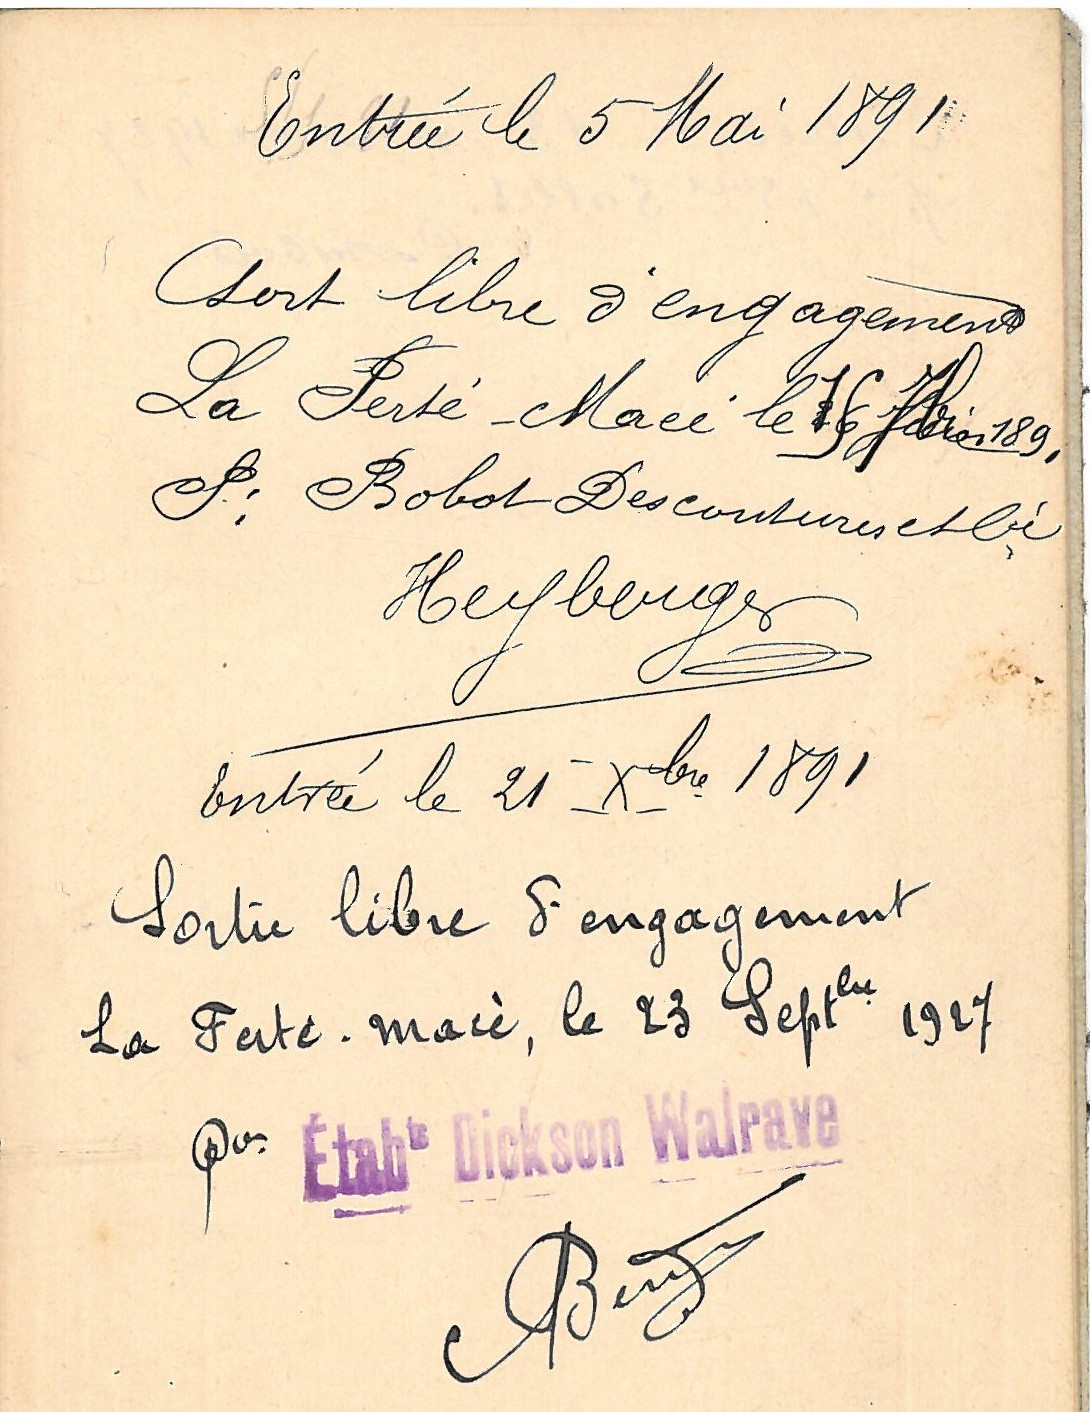 Entrée le 5 Mai 1891
Sort libre d'engagement
La Ferté-Macé le 16 189
P. Bobot Descoutures et Cie
Heyberger
Entrée le 21 Xbre 1891
Sortie libre d'engagement
La Ferté-Macé, le 23 Septbre 1927
por Étabts Dickson Walrave